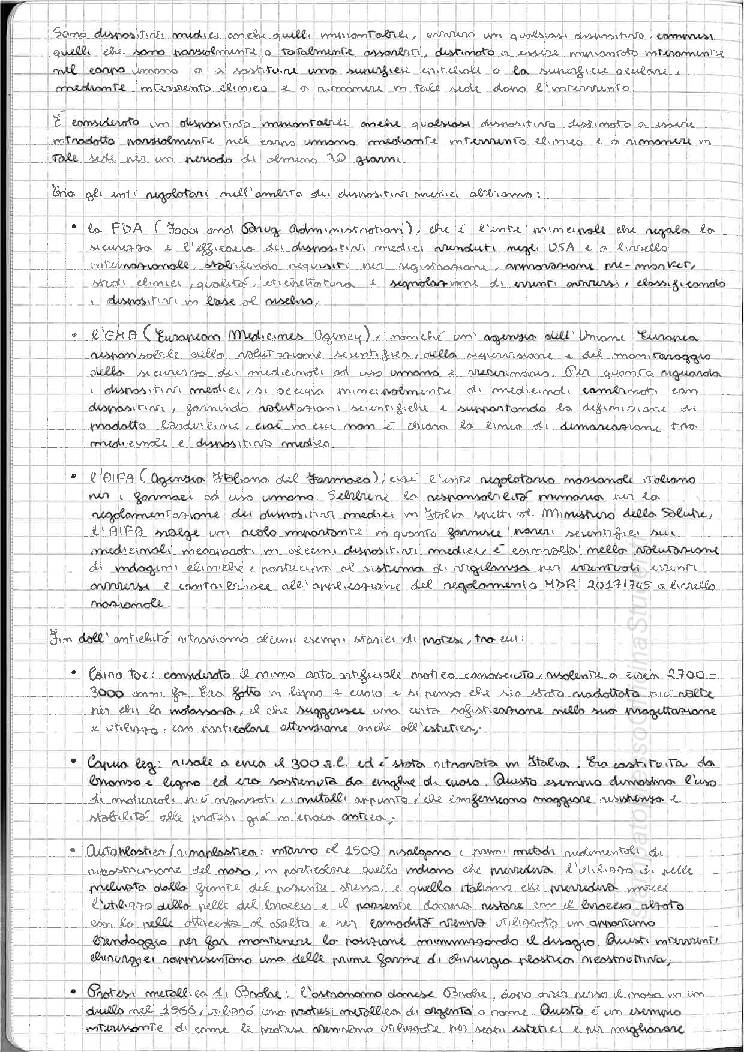 Sono dispositivi medici anche quelli impiantabili, ovvero un qualsiasi dispositivo, compresi
quelli che sono parzialmente o totalmente assorbiti, destinato a essere impiantato interamente
nel corpo umano o a sostituire una superficie epiteliale o la superficie oculare,
mediante intervento clinico e a rimanere in tale sede dopo l'intervento.
È considerato un dispositivo impiantabile anche qualsiasi dispositivo destinato a essere
introdotto parzialmente nel corpo umano mediante intervento clinico e a rimanere in
tale sede per un periodo di almeno 30 giorni.
Tra gli enti regolatori nell'ambito dei dispositivi medici abbiamo:
• la FDA (Food and Drug Administration), che è l'ente principale che regola la
sicurezza e l'efficacia dei dispositivi medici venduti negli USA e a livello
internazionale, stabilendo requisiti per registrazione, approvazione pre-market,
studi clinici, qualità, etichettatura e segnalazione di eventi avversi, classificando
i dispositivi in base al rischio;
• l'EMA (European Medicines Agency), nonché un'agenzia dell'Unione Europea
responsabile della valutazione scientifica, della supervisione e del monitoraggio
della sicurezza dei medicinali ad uso umano e veterinario. Per quanto riguarda
i dispositivi medici, si occupa principalmente di medicinali combinati con
dispositivi, fornendo valutazioni scientifiche e supportando la definizione di
prodotto borderline, cioè in cui non è chiara la linea di demarcazione tra
medicinale e dispositivo medico.
• l'AIFA (Agenzia Italiana del Farmaco), cioè l'ente regolatorio nazionale italiano
per i farmaci ad uso umano. Sebbene la responsabilità primaria per la
regolamentazione dei dispositivi medici in Italia spetti al Ministero della Salute,
l'AIFA svolge un ruolo importante in quanto fornisce pareri scientifici sui
medicinali incorporati in alcuni dispositivi medici, è coinvolta nella valutazione
di indagini cliniche e partecipa al sistema di vigilanza per eventuali eventi
avversi e contribuisce all'applicazione del regolamento MDR 2017/745 a livello
nazionale.
Fin dall'antichità ritroviamo alcuni esempi storici di protesi, tra cui:
• Cairo toe: considerato il primo arto artificiale protico conosciuto, risalente a circa 2700-
3000 anni fa. Era fatto in legno e cuoio e si pensa che sia stato riadattato più volte
per chi lo indossava, il che suggerisce una certa sofisticazione nella sua progettazione
e utilizzo, con particolare attenzione anche all'estetica;
• Capua leg: risale a circa il 300 a.C. ed è stata ritrovata in Italia. Era costituita da
bronzo e legno ed era sostenuta da cinghie di cuoio. Questo esempio dimostra l'uso
di materiali più avanzati, i metalli appunto, che conferiscono maggiore resistenza e
stabilità alle protesi già in epoca antica;
• Autoplastica/rinoplastica: intorno al 1500 risalgono i primi metodi rudimentali di
ricostruzione del naso, in particolare quello indiano che prevedeva l'utilizzo di pelle
prelevata dalla fronte del paziente stesso, e quello italiano che prevedeva invece
l'utilizzo della pelle del braccio e il paziente doveva restare con il braccio alzato
con la pelle attaccata al                e per comodità veniva utilizzato un apposito
bendaggio per far mantenere la posizione minimizzando il disagio. Questi interventi
chirurgici rappresentano una delle prime forme di chirurgia plastica ricostruttiva;
• Protesi metallica di Brahe: l'astronomo danese Brahe, dopo aver perso il naso in un
duello nel 1566, utilizzò una protesi metallica di argento o rame. Questo è un esempio
interessante di come le protesi venivano utilizzate per scopi estetici e per migliorare